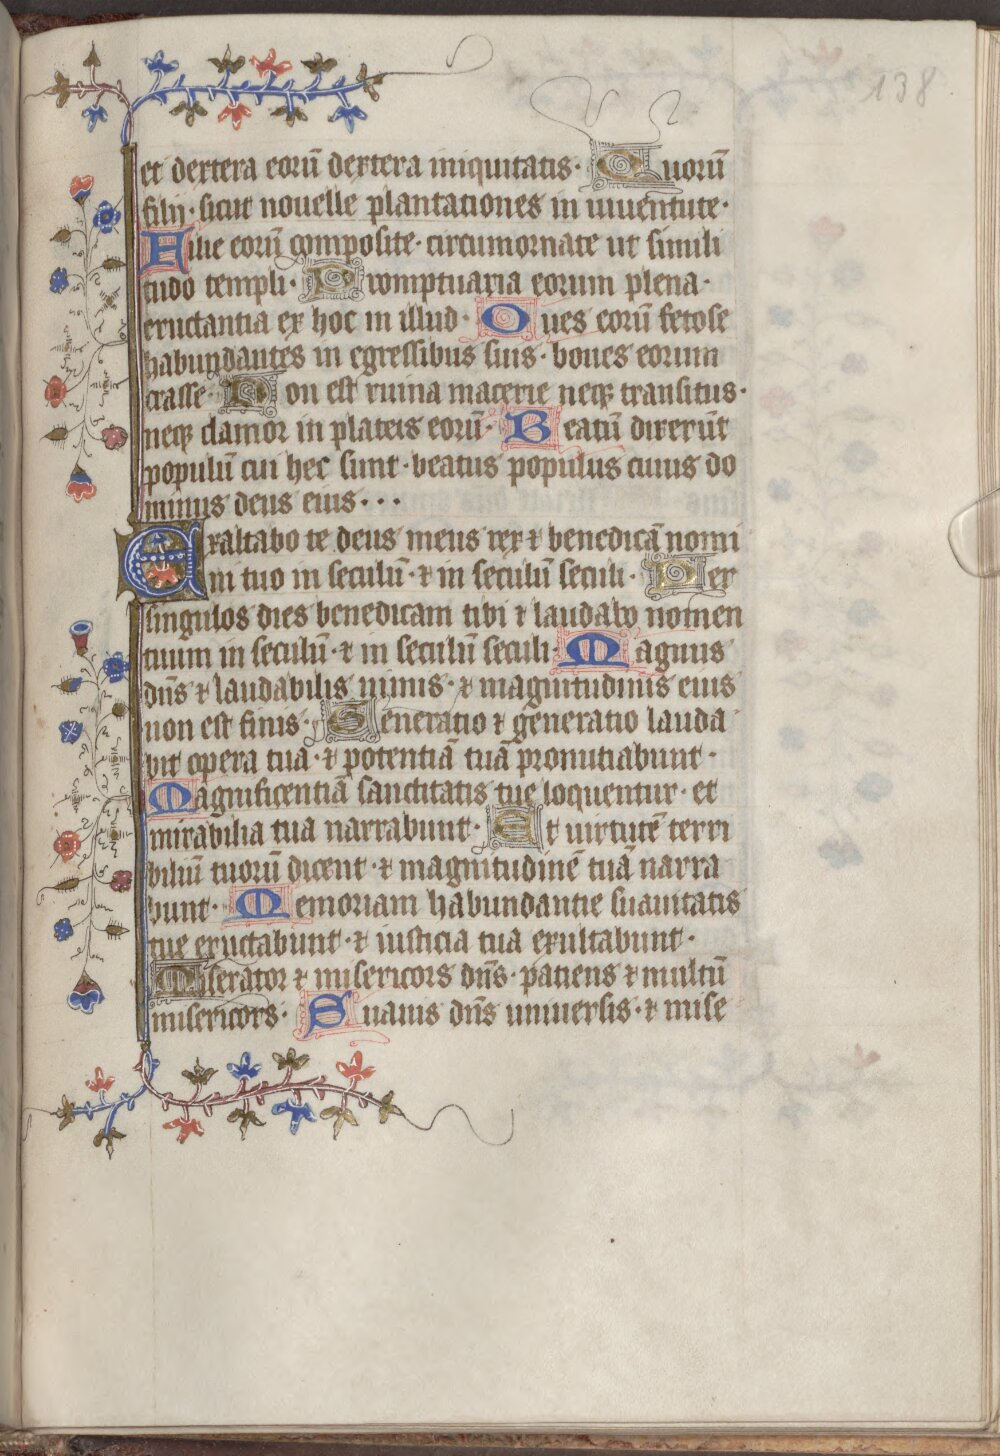 138
et dextera eorū dextera iniquitatis· Quorū
filii· sicut nouelle plantationes in iuuentute·
Filie eorū composite· circumornate ut simili
tudo templi· Promptuaria eorum plena·
eructantia ex hoc in illud· Oues eorū fetose
habundantes in egressibus suis· boues eorum
crasse· Non est ruina macerie neqꝫ transitus·
neqꝫ clamor in plateis eorū· Beatū dixerūt
populū cui hec sunt· beatus populus cuius do
minus deus eius···
Exaltabo te deus meus rex ⁊ benedicā nomi
ni tuo in seculū· ⁊ in seculū seculi· Per
singulos dies benedicam tibi ⁊ laudabo nomen
tuum in seculū· ⁊ in seculū seculi· Magnus
dn̄s ⁊ laudabilis nimis· ⁊ magnitudinis eius
non est finis· Generatio ⁊ generatio lauda
bit opera tua· ⁊ potentiā tuā pronūtiabunt·
Magnificentiā sanctitatis tue loquentur· et
mirabilia tua narrabunt· Et uirtutē terri
biliū tuorū dicent· ⁊ magnitudinē tuā narra
bunt· Memoriam habundantie suauitatis
tue eructabunt· ⁊ iusticia tua exultabunt·
Miserator ⁊ misericors dn̄s· patiens ⁊ multū
misericors· Suauis dn̄s uniuersis· ⁊ mise